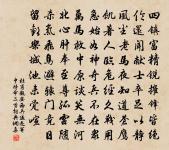 四鎮富精銳摧鋒皆絕
倫還聞獻士卒足以靜
風塵老馬夜知道蒼鷹
飢著人臨危經久戰用
急始如神奇兵不在眾
萬馬救中原談笑無河
北心肝奉至尊孤雲隨
殺氣飛鳥避轅門竟日
留歡樂城池未覺喧
杜甫觀安西兵過赴關
中待命二首